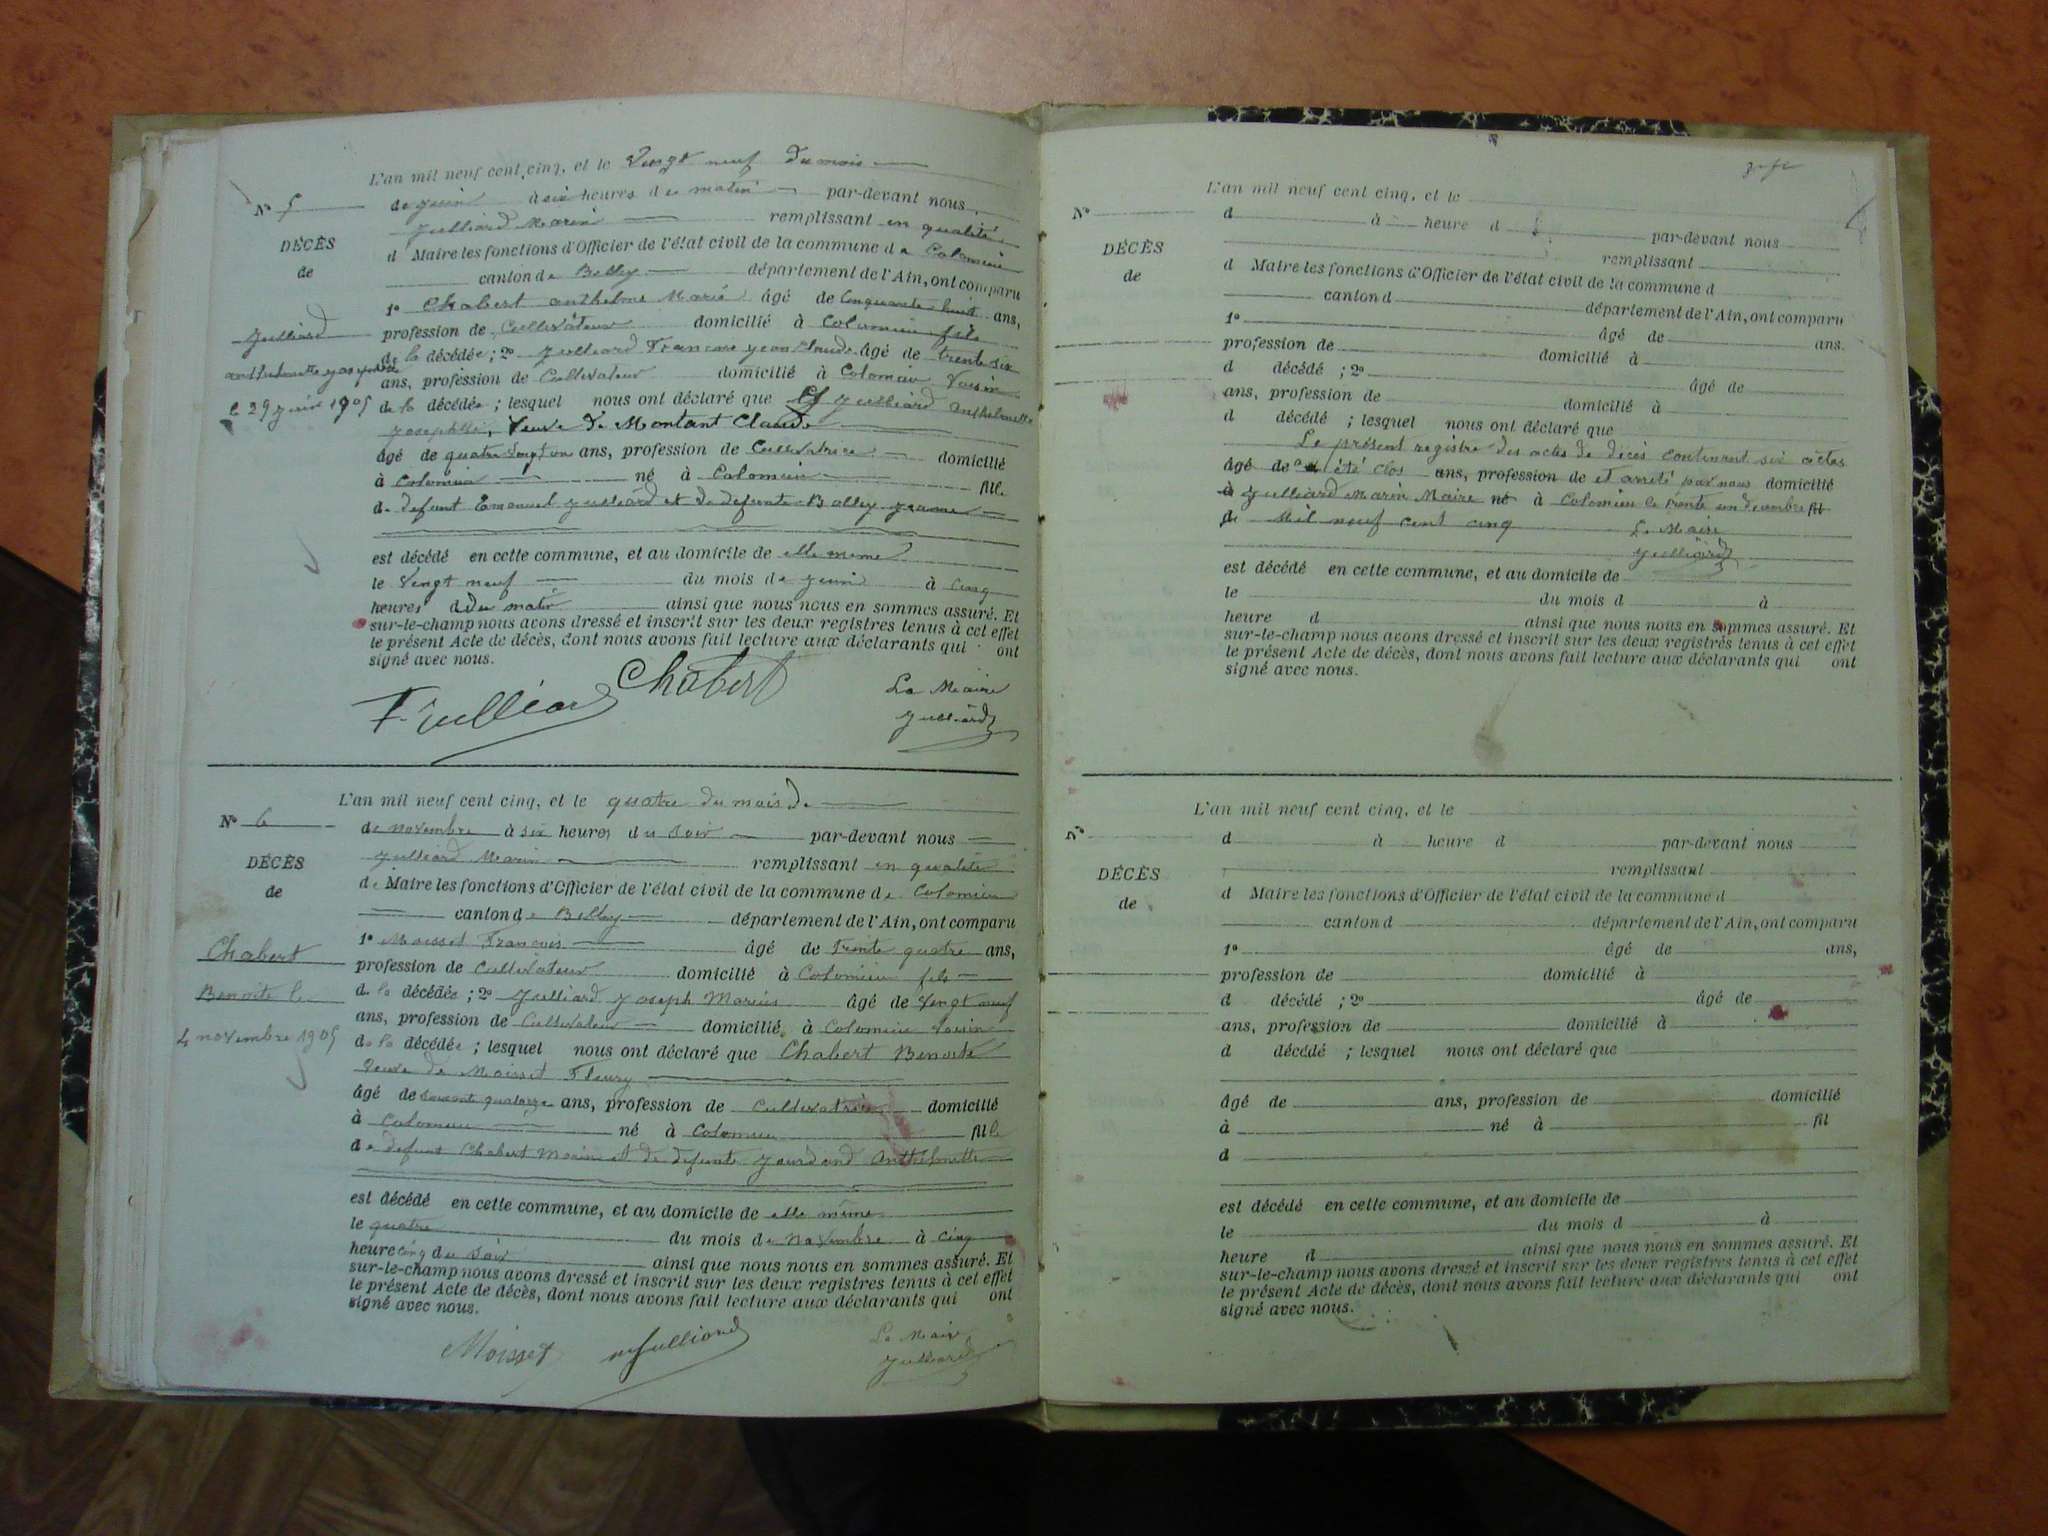 L'an mil neuf cent cinq, et le Vingt neuf du mois
N° 5
de juin à six heures du matin par-devant nous
Julliard Marin remplissant en qualité
DÉCÈS
de
d Maire les fonctions d'Officier de l'état civil de la commune de Colomieu
canton de Belley département de l'Ain, ont comparu
1° Chabert anthelme Marie âgé de Cinquante huit ans,
Julliard
profession de Cultivateur domicilié à Colomieu fils
de la décédée ; 2° Julliard Francois jean Claude âgé de trente six
anthelmette josephte
ans, profession de Cultivateur domicilié à Colomieu Voisin
le 29 juin 1905
de la décédée ; lesquel nous ont déclaré que Julliard Anthelmette
Josephte, Veuve de Montant Claude
âgé de quatre vingt un ans, profession de Cultivatrice domicilié
à Colomieu né à Colomieu fille
de defunt Emanuel Julliard et de defunte Bolley jeanne
est décédé en cette commune, et au domicile de elle meme
le Vingt neuf du mois de juin à cinq
heures du matin ainsi que nous nous en sommes assuré. Et
sur-le-champ nous avons dressé et inscrit sur les deux registres tenus à cet effet
le présent Acte de décès, dont nous avons fait lecture aux déclarants qui ont
signé avec nous.
F. Julliard Chabert Le Maire
Julliard
L'an mil neuf cent cinq, et le quatre du mois de
N° 6
de novembre à six heures du soir par-devant nous
Julliard Marin remplissant en qualité
DÉCÈS
de
de Maire les fonctions d'Officier de l'état civil de la commune de Colomieu
canton de Belley département de l'Ain, ont comparu
Chabert
1° Moisset Francois âgé de Trente quatre ans,
profession de Cultivateur domicilié à Colomieu fils
Benoite le
de la décédée ; 2° Julliard Joseph Marius âgé de Vingt neuf
ans, profession de Cultivateur domicilié à Colomieu Voisin
4 novembre 1905
de la décédée ; lesquel nous ont déclaré que Chabert Benoite
Veuve de Moisset Fleury
âgé de soixante quatorze ans, profession de Cultivatrice domicilié
à Colomieu né à Colomieu fille
de defunt Chabert Marin et de defunte Jourdand Anthelmette
est décédé en cette commune, et au domicile de elle même
le quatre du mois de novembre à cinq
heure cinq du soir ainsi que nous nous en sommes assuré. Et
sur-le-champ nous avons dressé et inscrit sur les deux registres tenus à cet effet
le présent Acte de décès, dont nous avons fait lecture aux déclarants qui ont
signé avec nous.
Moisset mJulliard Le Maire
Julliard
L'an mil neuf cent cinq, et le
N°
d à heure d par-devant nous
remplissant
DÉCÈS
de
d Maire les fonctions d'Officier de l'état civil de la commune d
canton d département de l'Ain, ont comparu
1° âgé de ans.
profession de domicilié à
d décédé ; 2° âgé de
ans, profession de domicilié à
d décédé ; lesquel nous ont déclaré que
Le présent registre des actes de décès contenant six actes
âgé de a été clos ans, profession de et arrêté par nous domicilié
à Julliard Marin Maire né à Colomieu le trente un decembre fil
de Mil neuf cent cinq Le Maire
Julliard
est décédé en cette commune, et au domicile de
le du mois d à
heure d ainsi que nous nous en sommes assuré. Et
sur-le-champ nous avons dressé et inscrit sur les deux registres tenus à cet effet
le présent Acte de décès, dont nous avons fait lecture aux déclarants qui ont
signé avec nous.
L'an mil neuf cent cinq, et le
N°
d à heure d par-devant nous
remplissant
DÉCÈS
de
d Maire les fonctions d'Officier de l'état civil de la commune d
canton d département de l'Ain, ont comparu
1° âgé de ans,
profession de domicilié à
d décédé ; 2° âgé de
ans, profession de domicilié à
d décédé ; lesquel nous ont déclaré que
âgé de ans, profession de domicilié
à né à fil
d
est décédé en cette commune, et au domicile de
le du mois d à
heure d ainsi que nous nous en sommes assuré. Et
sur-le-champ nous avons dressé et inscrit sur les deux registres tenus à cet effet
le présent Acte de décès, dont nous avons fait lecture aux déclarants qui ont
signé avec nous.